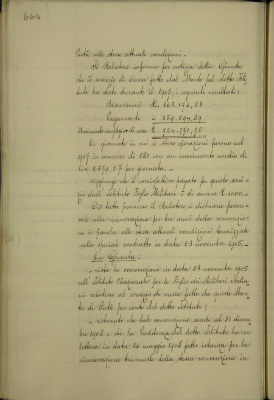 664
tutti alle stesse attuali condizioni.
Il Relatore informa per notizia della Giunta
che il servizio di Cassa fatto dal Monte pel detto Isti-
tuto ha dato durante il 1907, i seguenti risultati:
Riscossioni L.
Pagamenti
Le giornate in cui si fecero operazioni furono nel
1907 in numero di 261 con un movimento medio di
lire per giornata.
Aggiunge che il corrispettivo pagato per questo servi-
zio dall'Istituto Figlie Militari è di annue L. 1000.
Ciò tutto premesso il Relatore si dichiara favore-
vole alla rinnovazione per tre anni della convenzione
in parola alle stesse attuali condizioni
nella speciale contratto in data 23 novembre 1905.
La Giunta;
Vista la convenzione in data 23 novembre 1905
coll'Istituto Nazionale per le Figlie dei Militari Italia-
ni relativa al servizio di cassa fatto da questo Mon-
te di Pietà per conto del detto Istituto;
Ritenuto che tale convenzione scade al 31 dicem-
bre 1908 e che la Presidenza del detto Istituto ha con
lettera in data 26 maggio 1908 fatto istanza per la
rinnovazione triennale della stessa convenzione in